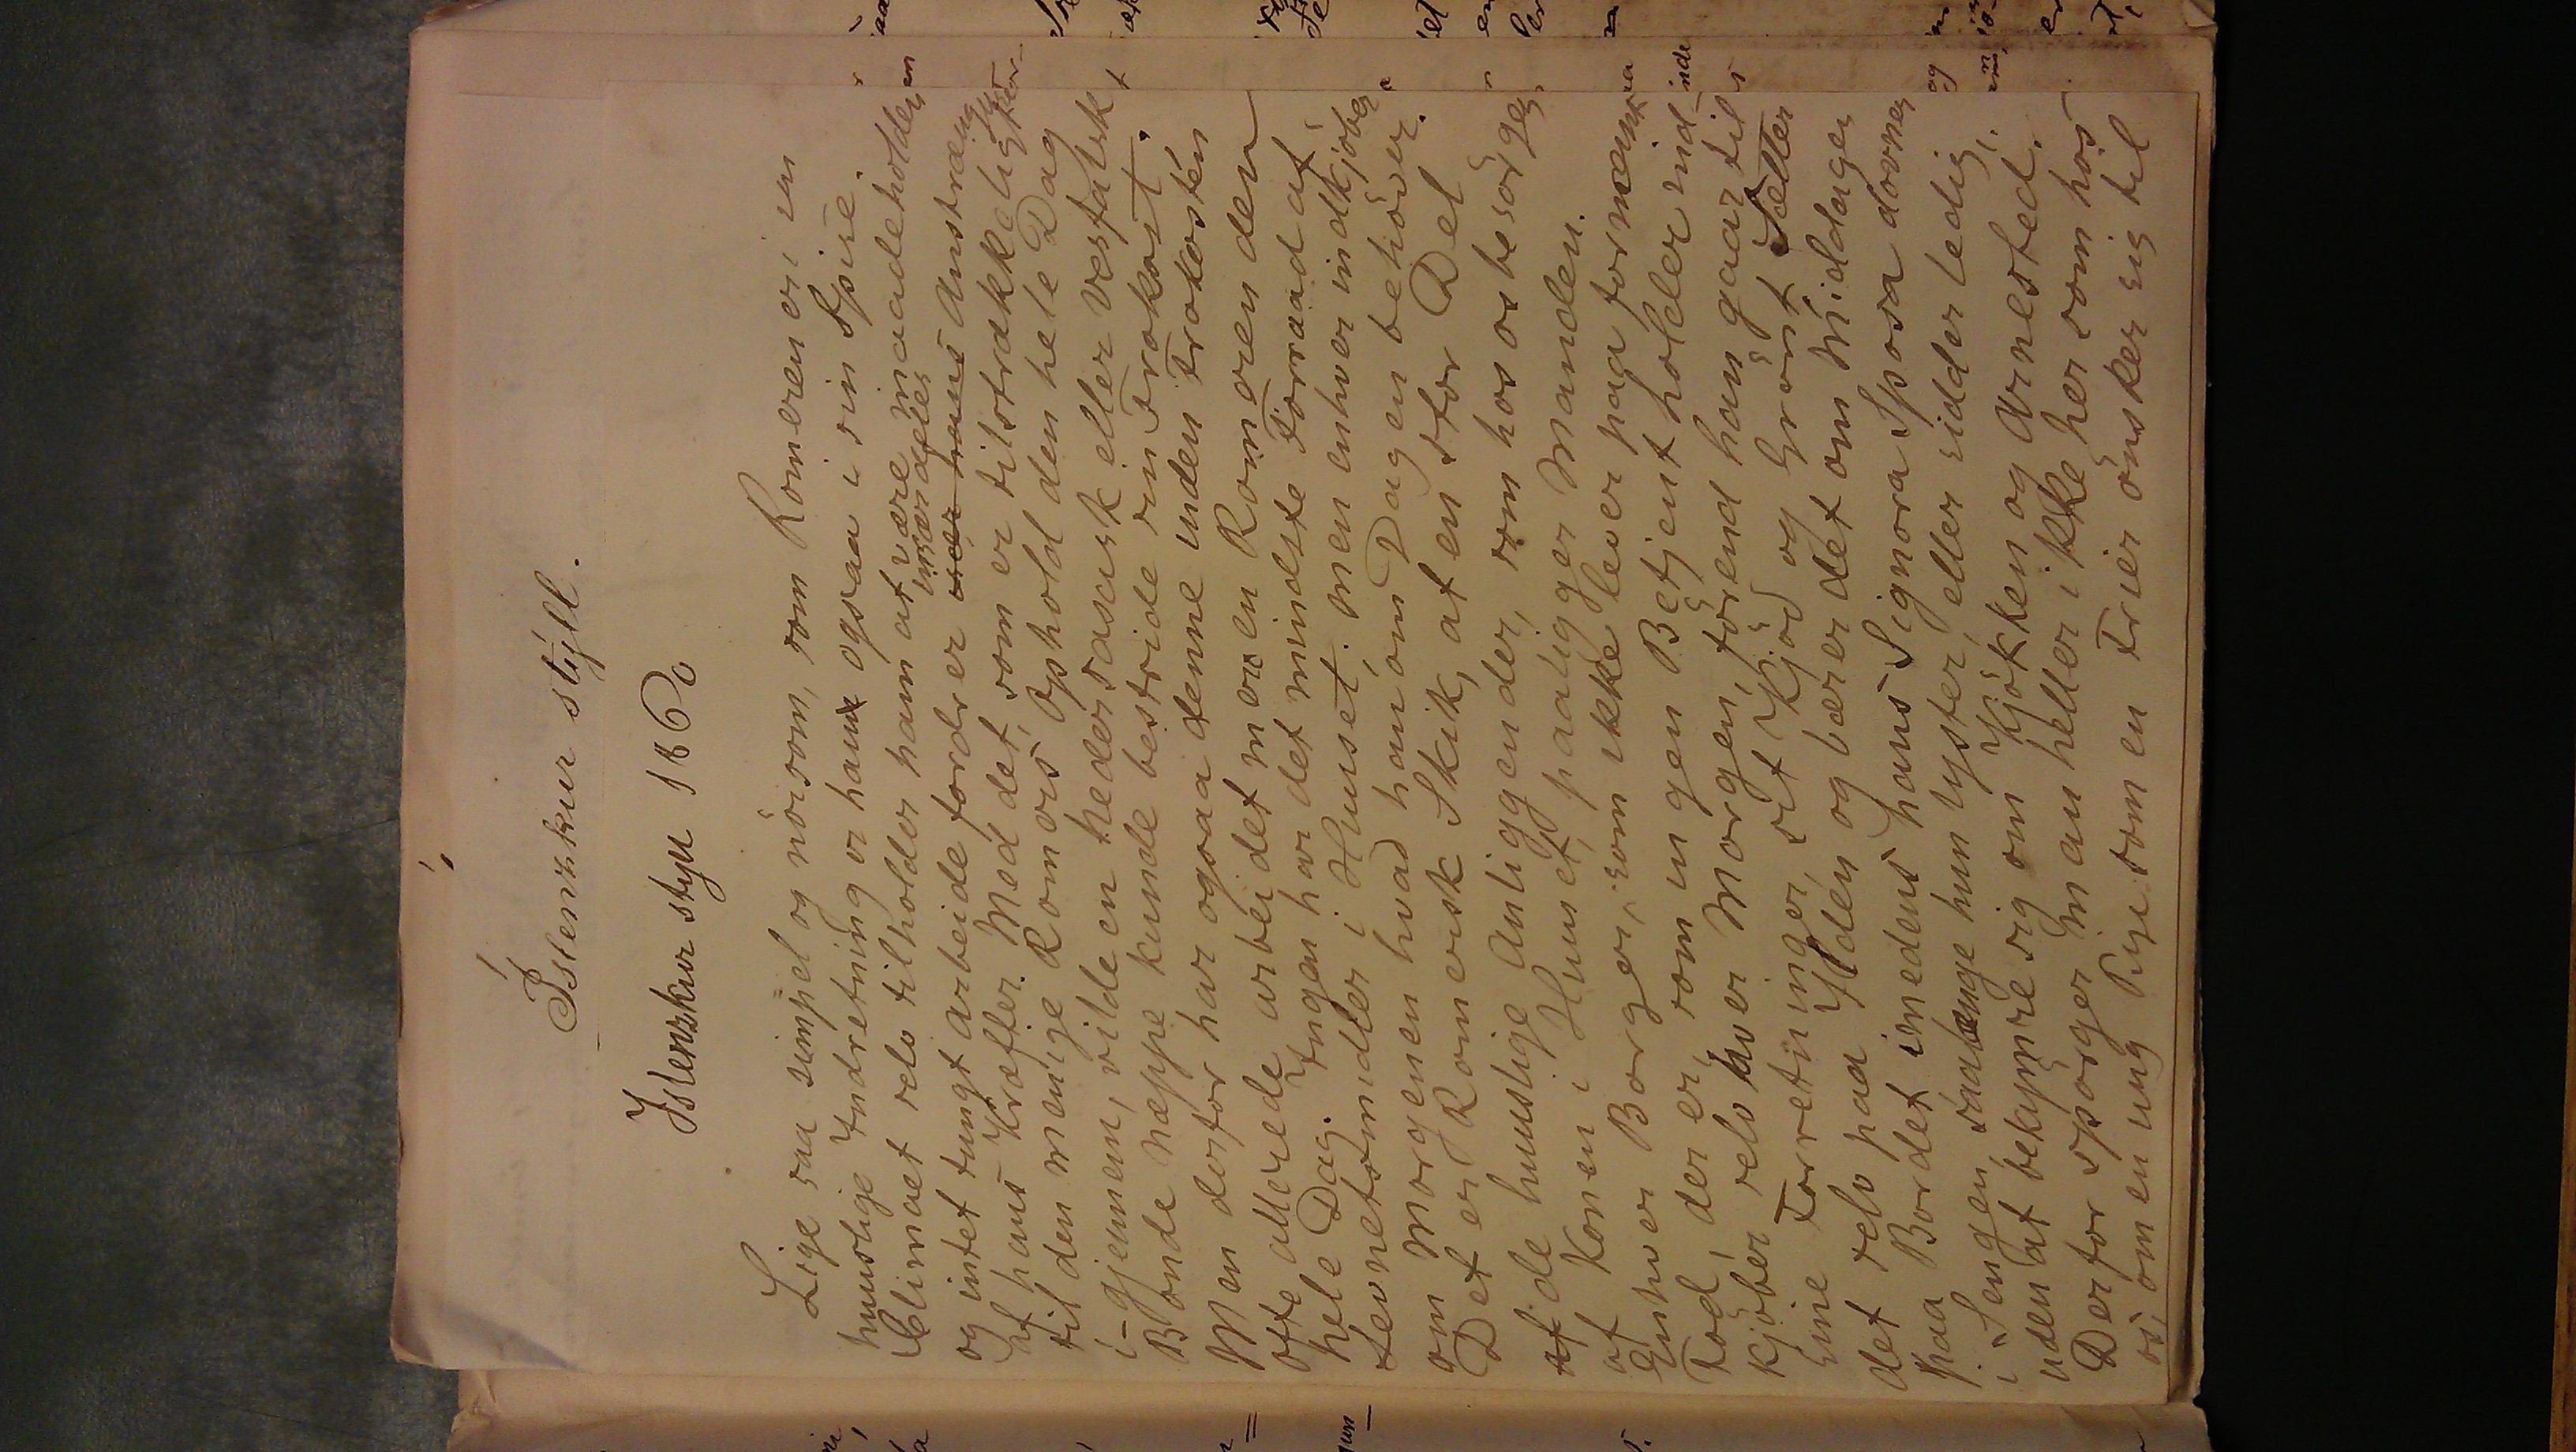 Íslenzkur stýll.
Islenzkur styll 1860
Lige saa simpel og nöisom, som Romeren er i sin
huuslige Indretning er han ogsaa i sin Spise.
Climaet selv tilholder ham at være maadeholden
og intet tungt arbeide fordrer særdeles Anstrængelse
af hans Kræfter. Med det, som er tilstrækkeligt for
til den menige Romers Ophold den hele Dag
i-gjennem, vilde en nedersaxisk eller vestfalsk
Bonde næppe kunde bestride sin Frokost.
Men derfor har ogsaa denne inden Frokosten
ofte allerede arbeidet mer en Romeren den
hele Dag. Ingen har det mindste Forraad af
Levnetsmidler i Huuset. men enhver indkjöber
om Morgenen hvad han om Dagen behöver.
Det er Romersk Skik, at en stor Del
af de huuslige Anliggender, som hos os besörges
af Konen i Huuset, paaligger Manden.
Enhver Borger, som ikke lever paa fornem
Fod, der er, som ingen Betjent holder
kjöber selv hver Morgen, förend han gaar til
sine Forretninger, sit Kjöd og Grönt Sætter
det selv paa Ilden og bærer det om Middagen
paa Bordet imedens hans Signora Sposa dovner
i Sengen, saalænge hun lyster, eller sidder ledig,
uden at bekymre sig om Kjökken og Arnested.
Derfor spörger man heller ikke her som hos
os, om en ung Pige som en Frier önsker sig til